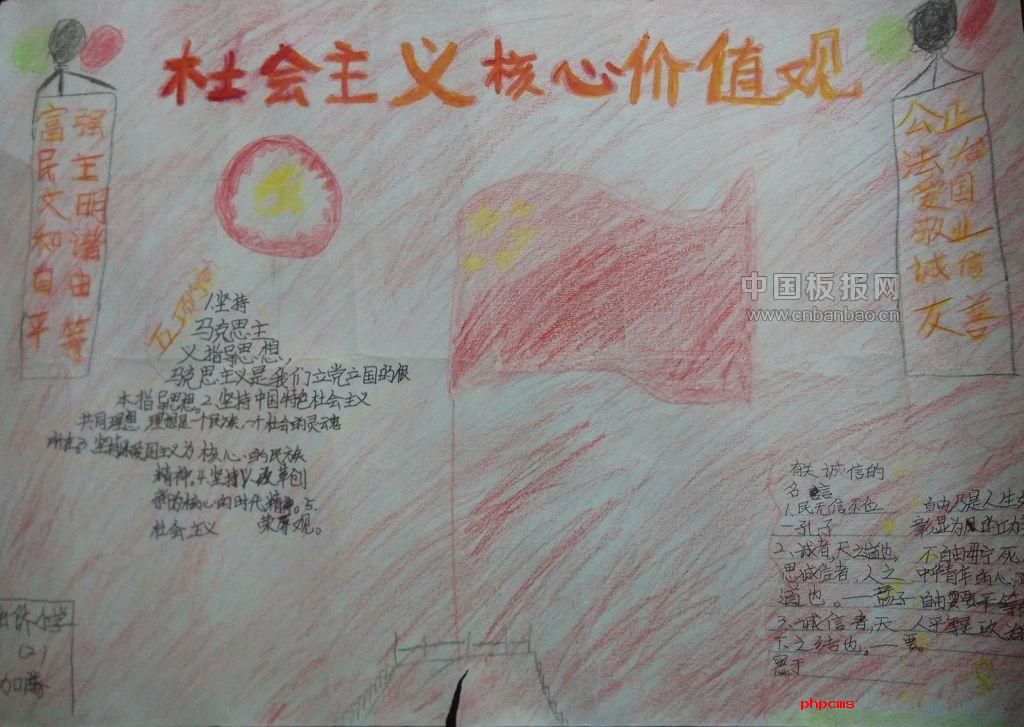 社会主义核心价值观
富强
民主
文明
和谐
自由
平等
公正
法治
爱国
敬业
诚信
友善
中国板报网
www.cnbanbao.cn
五项
1.坚持
马克思主
义指导思想,
马克思主义是我们立党立国的根
本指导思想。2.坚持中国特色社会主义
共同理想,理想是一个民族,一个社会的灵魂
所在3.坚持以爱国主义为核心的民族
精神。4.坚持以改革创
新为核心的时代精神。5.
社会主义 荣辱观。
有关诚信的
名言
1.民无信不立
—孔子
2、诚者,天之道也,
思诚信者,人之
道也。——孟子
3、诚信者,天
下之结也。——
墨子
自由乃是人生
彰显为
不自由毋宁死
中华青年的心
自由 平等
人平等是政治
小学
(2)
加腾
phpcms